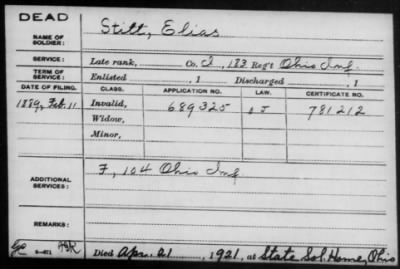 DEAD
NAME OF SOLDIER: Stitt, Elias
SERVICE: Late rank, Co. I, 183 Reg't Ohio Inf.
TERM OF SERVICE: Enlisted , 1 Discharged , 1
DATE OF FILING. CLASS. APPLICATION NO. LAW. CERTIFICATE NO.
1889, Feb. 11 Invalid, 689325 J 781212
Widow,
Minor,
ADDITIONAL SERVICES: F, 104 Ohio Inf
REMARKS:
Died Apr. 21, 1921, at State Sol. Home, Ohio